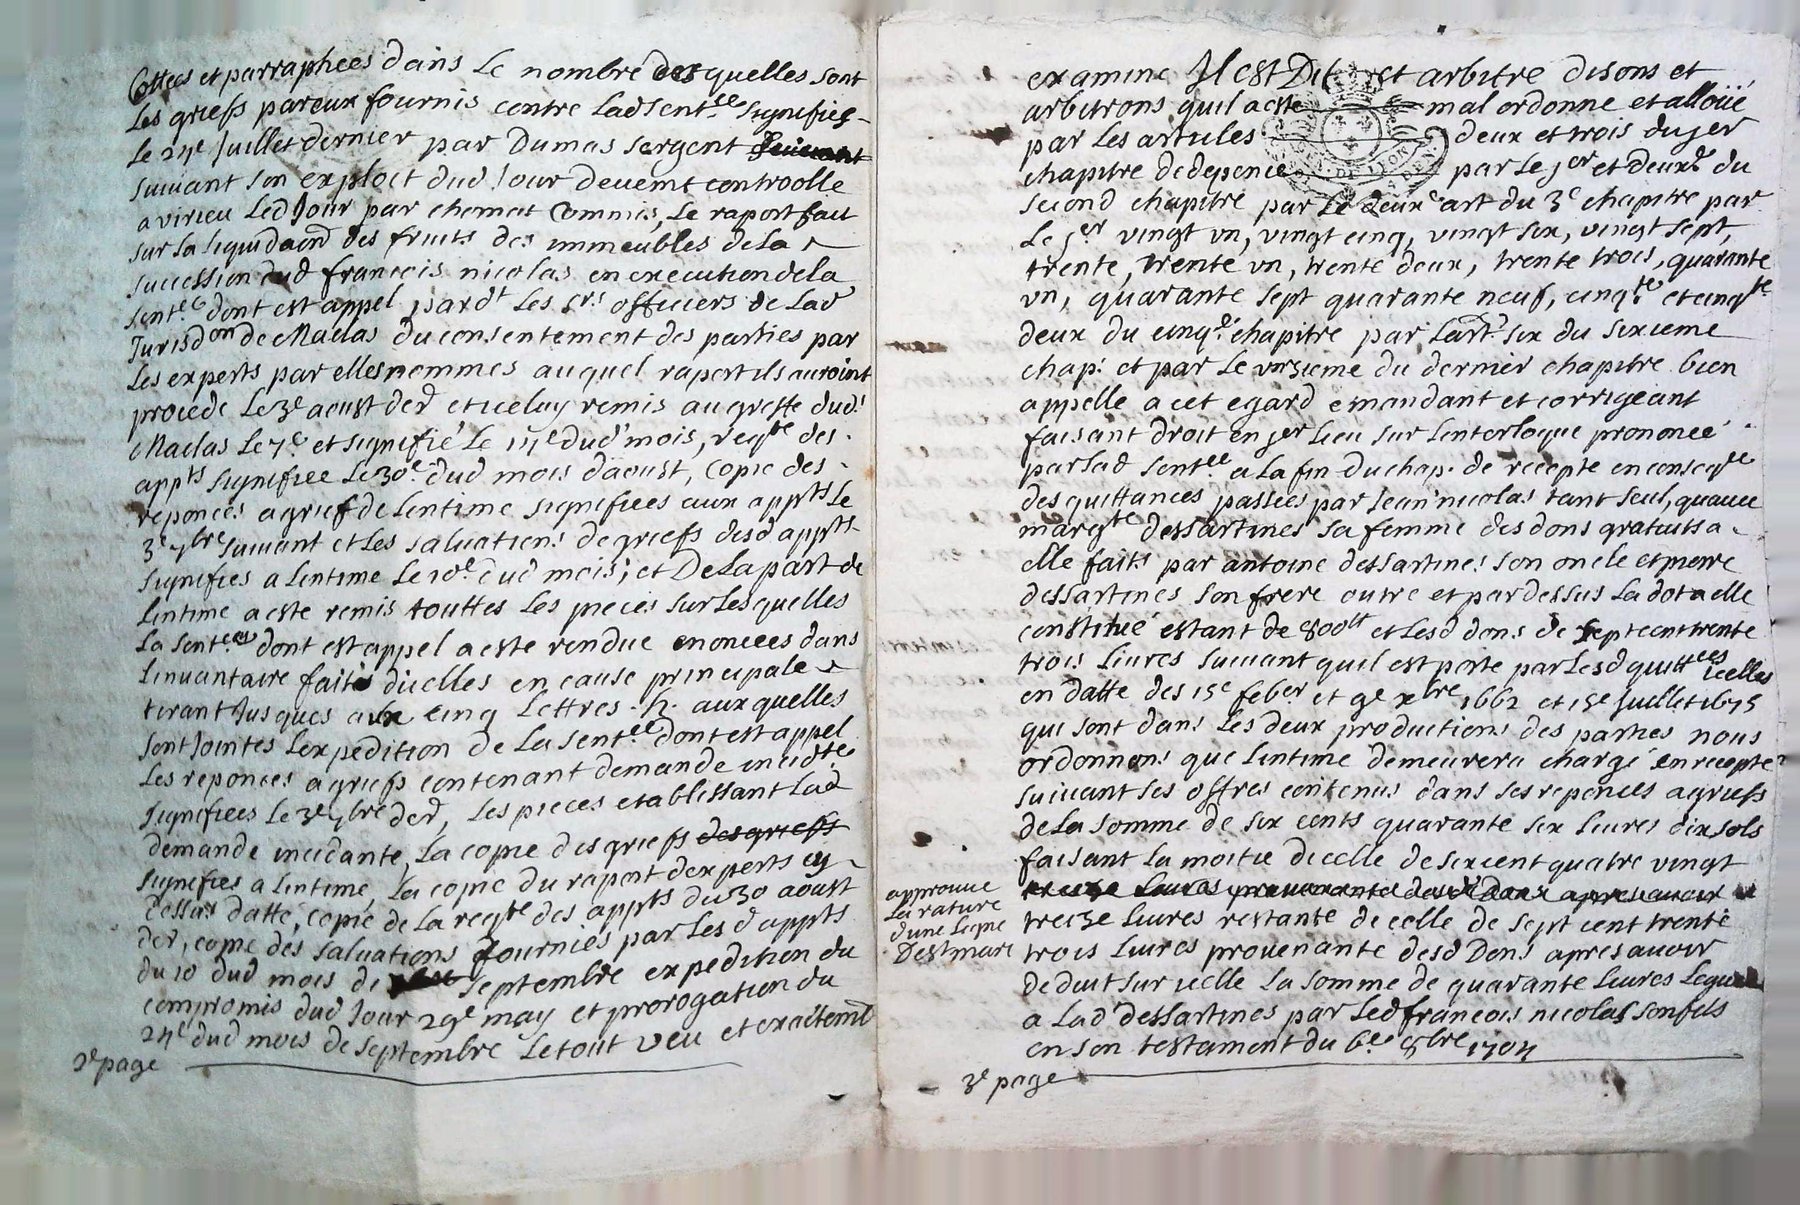 Cottees et parraphees dans le nombre desquelles sont
les griefs pareux fournis contre ladsent.ce signifies
le 24e Juillet dernier par Dumas sergent
suivant son exploit dud Jour deuemt controolle
a virieu led Jour par chomat Commis, le raport fait
sur la liquidaon des fruits des immeubles de la
succession dud francois nicolas en execution de la
sent.e dont est appel pard.t les srs officiers de lad
Jurisdon de Maclas du consentement des parties par
les experts par elles nommes auquel raport ils auroint
procede le 3e aoust der et iceluy remis au greffe dud.
Maclas le 7e et signifié le 11e dud mois, reqte des
appts signifiee le 30e dud mois daoust, copie des
reponces a grief de lintime signifiees aux appts le
3e 7bre suivant et les saluations de griefs desd appts
signifies a lintime le 10e dud mois; et De la part de
lintime a este remis touttes les pieces sur lesquelles
la sent.ce dont est appel a este rendue enoncees dans
linvantaire faite dicelles en cause principale
tirant Jusques aux cinq lettres . h . auxquelles
sont Jointes lexpedition de la sent.ce dont est appel
les reponces a griefs contenant demande incidte
signifiees le 3e 7bre der, les pieces etablissant lad
demande incidante, la copie des griefs des griefs
signifies a lintimé, la copie du raport dexperts cy
dessus datte, copie de la reqte des appts du 30 aoust
der, copie des saluations fournies par les d appts
du 10 dud mois de septembre expedition du
compromis dud Jour 29e may et prorogation du
24e dud mois de septembre le tout veu et exactemt
2e page
examine Il est Dit et arbitre disons et
arbitrons quil a este mal ordonne et alloüé
par les articles deux et trois du jer
chapitre de depence par le jer et deuxe du
second chapitre par le deuxe art du 3e chapitre par
le jer vingt vn, vingt cinq, vingt six, vingt sept,
trente, trente vn, trente deux, trente trois, quarante
vn, quarante sept quarante neuf, cinqte et cinqte
deux du cinqe chapitre par lart. six du sixieme
chap. et par le vnzieme du dernier chapitre bien
appelle a cet egard emandant et corrigeant
faisant droit en jer lieu sur linterloque prononcé
par lad sent.ce a la fin du chap. de recepte en conseqce
des quittances passees par Jean nicolas tant seul, quavec
margte dessartines sa femme des dons gratuits a
elle faits par antoine dessartines son oncle et pierre
dessartines son frere outre et pardessus la dot a elle
constitué estant de 800tt et lesd dons de sept cent trente
trois livres suivant quil est porte par lesd quittces icelles
en datte des 15e feber et 9e xbre 1662 et 15e Juillet 1675
qui sont dans les deux productions des parties nous
ordonnons que lintime demeurera chargé en recepte
suivant ses offres contenus dans ses reponces a griefs
de la somme de six cents quarante six livres dix sols
faisant la moitie dicelle de sixcent quatre vingt
treize livres restante de celle de sept cent trente
trois livres provenante desd Dons apres avoir
deduit sur icelle la somme de quarante livres leguée
a lad dessartines par led francois nicolas son fils
en son testament du 6e 8bre 1704
approuve
la rature
d'une ligne
Destmare
3e page